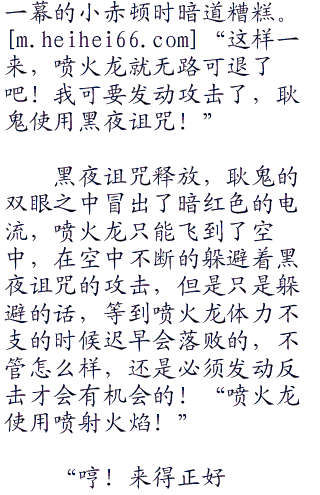 一幕的小赤顿时暗道糟糕。
[m.heihei66.com]“这样一
来，喷火龙就无路可退了
吧！我可要发动攻击了，耿
鬼使用黑夜诅咒！”
黑夜诅咒释放，耿鬼的
双眼之中冒出了暗红色的电
流，喷火龙只能飞到了空
中，在空中不断的躲避着黑
夜诅咒的攻击，但是只是躲
避的话，等到喷火龙体力不
支的时候迟早会落败的，不
管怎么样，还是必须发动反
击才会有机会的！“喷火龙
使用喷射火焰！”
“哼！来得正好